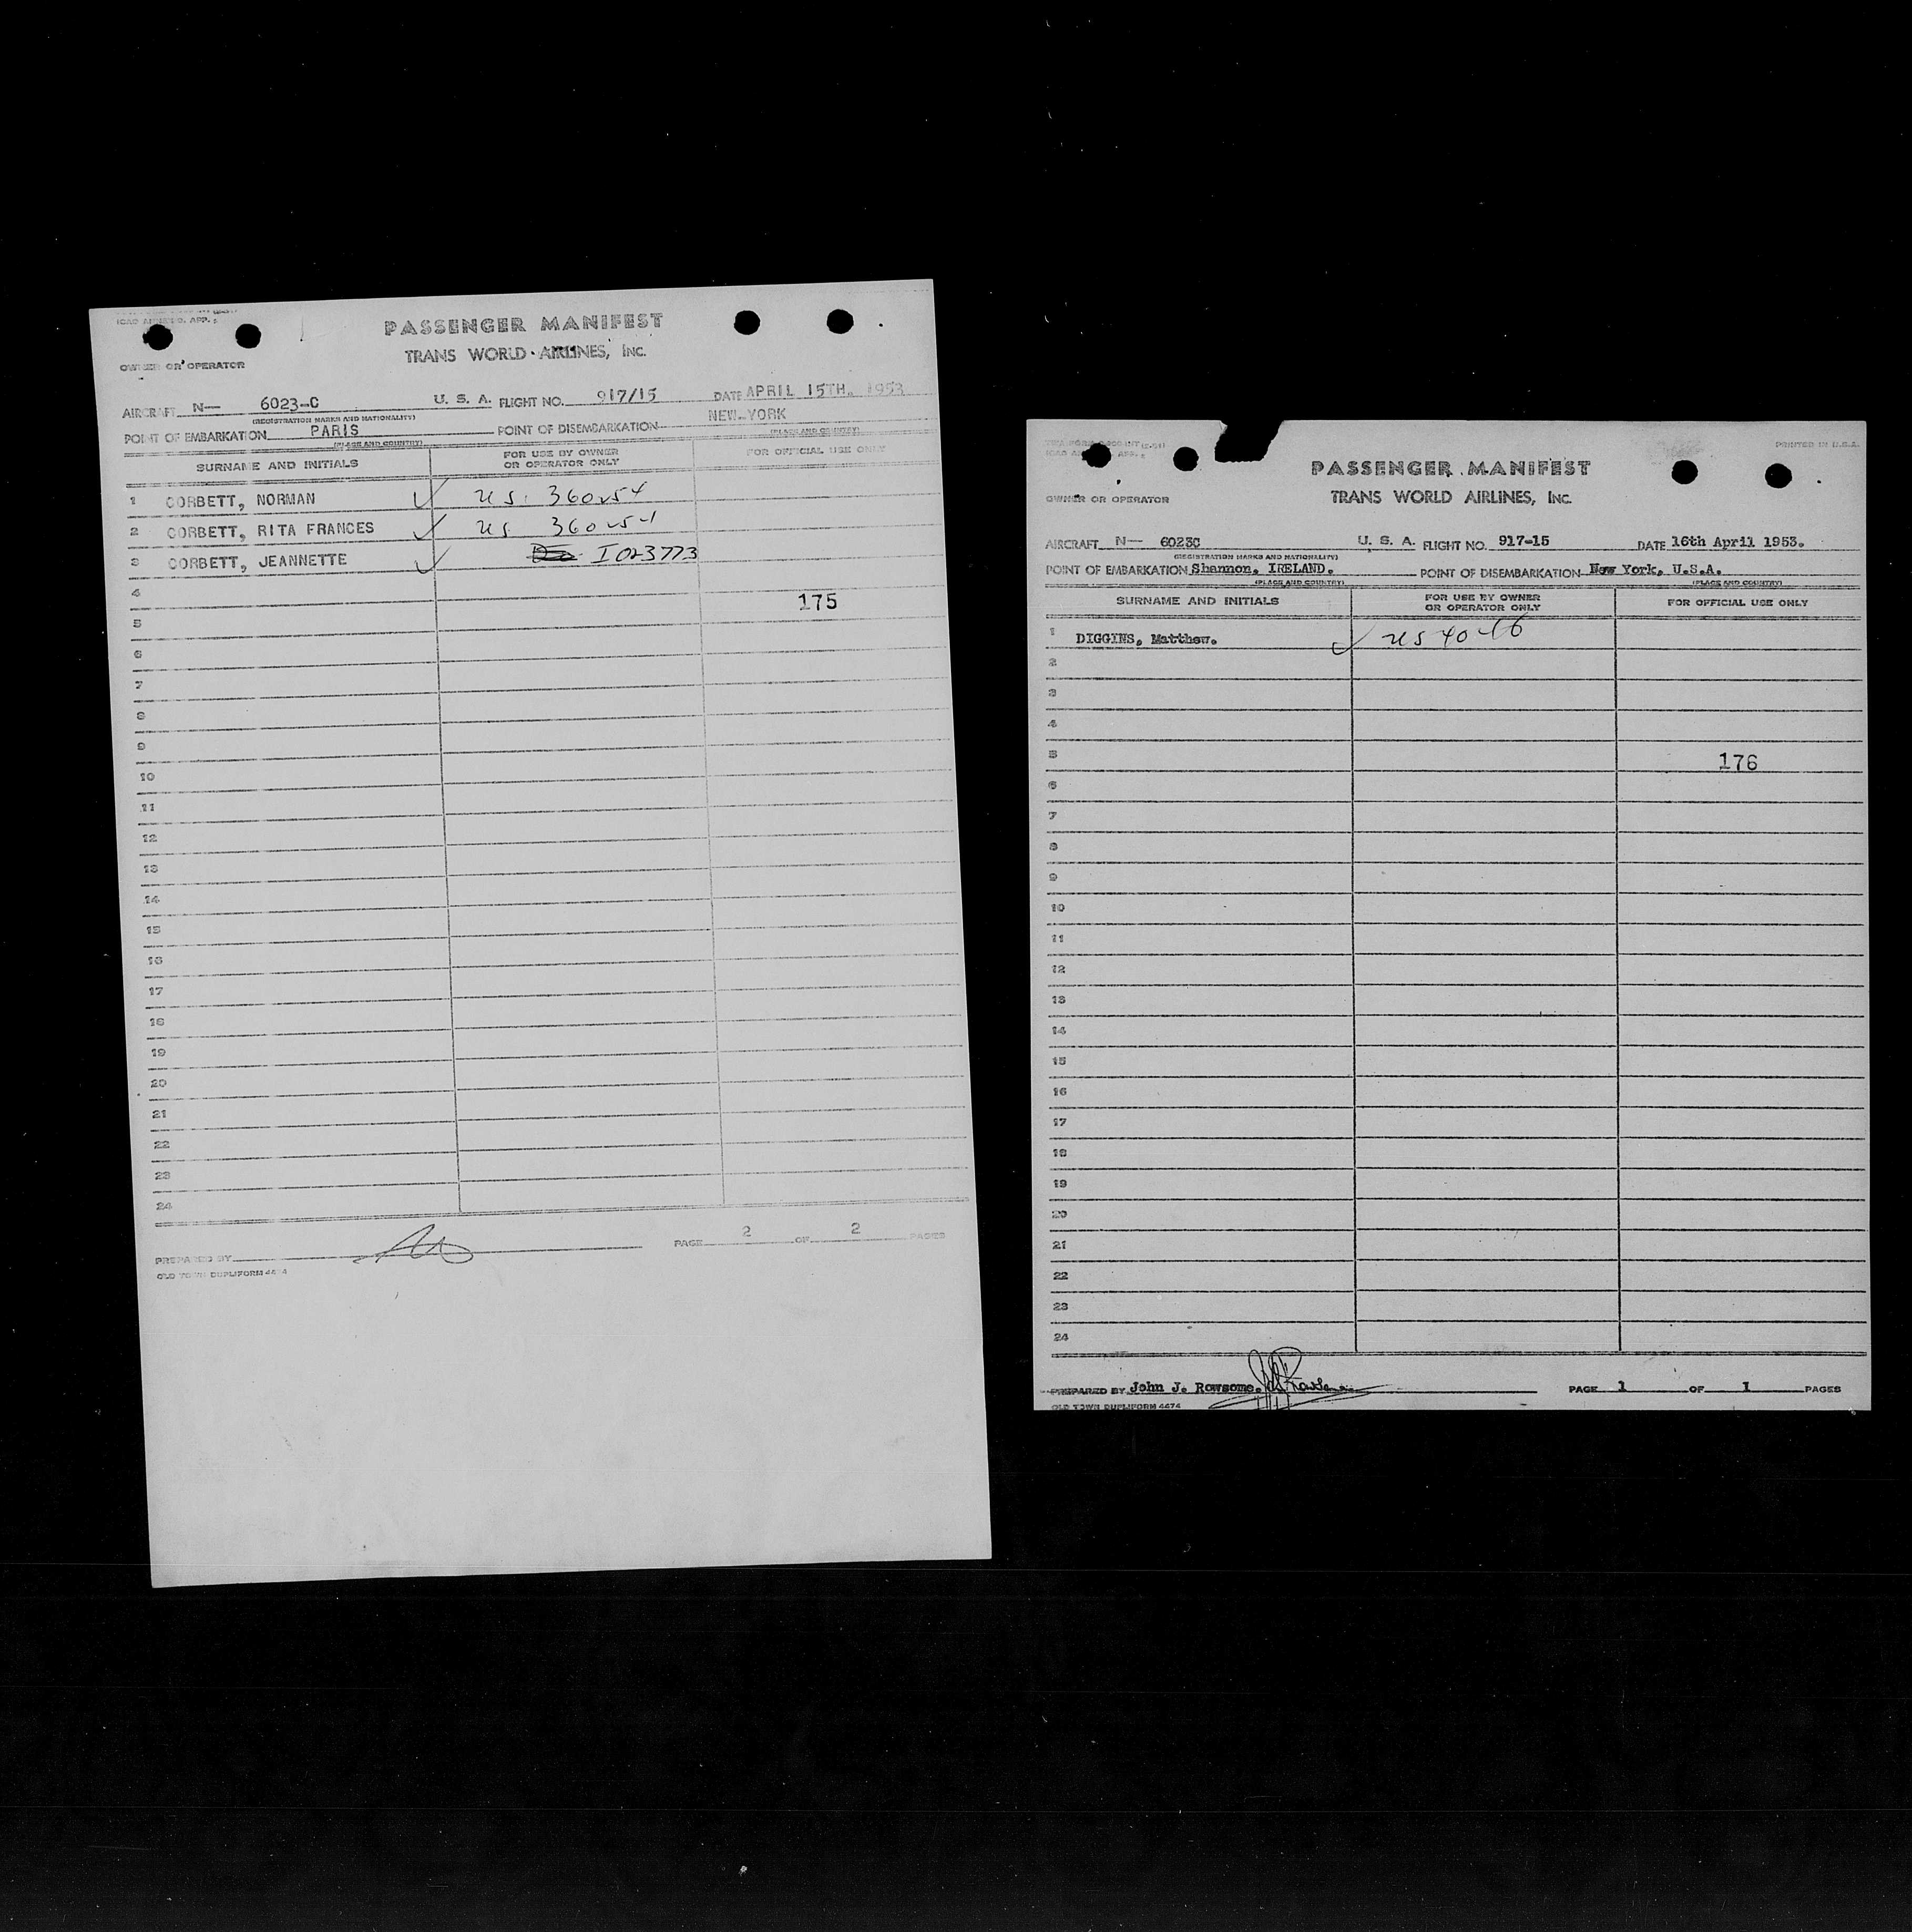 ICAO ANNEX 9, APP. 5
PASSENGER MANIFEST
TRANS WORLD AIRLINES, INC.
OWNER OR OPERATOR
AIRCRAFT N— 6023-C U. S. A. FLIGHT NO. 917/15 DATE APRIL 15TH, 1953
(REGISTRATION MARKS AND NATIONALITY)
POINT OF EMBARKATION PARIS POINT OF DISEMBARKATION NEW-YORK
(PLACE AND COUNTRY) (PLACE AND COUNTRY)
SURNAME AND INITIALS FOR USE BY OWNER OR OPERATOR ONLY FOR OFFICIAL USE ONLY
1 CORBETT, NORMAN US.
2 CORBETT, RITA FRANCES US
3 CORBETT, JEANNETTE I023773
4
175
5
6
7
8
9
10
11
12
13
14
15
16
17
18
19
20
21
22
23
24
PREPARED BY PAGE 2 OF 2 PAGES
OLD TOWN DUPLIFORM 4474
PRINTED IN U.S.A.
PASSENGER MANIFEST
TRANS WORLD AIRLINES, INC.
OWNER OR OPERATOR
AIRCRAFT N— 6023C U. S. A. FLIGHT NO. 917-15 DATE 16th April 1953.
(REGISTRATION MARKS AND NATIONALITY)
POINT OF EMBARKATION Shannon, IRELAND. POINT OF DISEMBARKATION New York, U.S.A.
(PLACE AND COUNTRY) (PLACE AND COUNTRY)
SURNAME AND INITIALS FOR USE BY OWNER OR OPERATOR ONLY FOR OFFICIAL USE ONLY
1 DIGGINS, Matthew. US
2
3
4
5 176
6
7
8
9
10
11
12
13
14
15
16
17
18
19
20
21
22
23
24
PREPARED BY John J. Rowsome. PAGE 1 OF 1 PAGES
OLD TOWN DUPLIFORM 4474